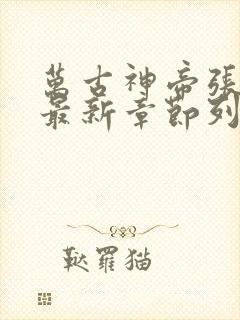 萬古神帝張
最新章節列
耿羅猫